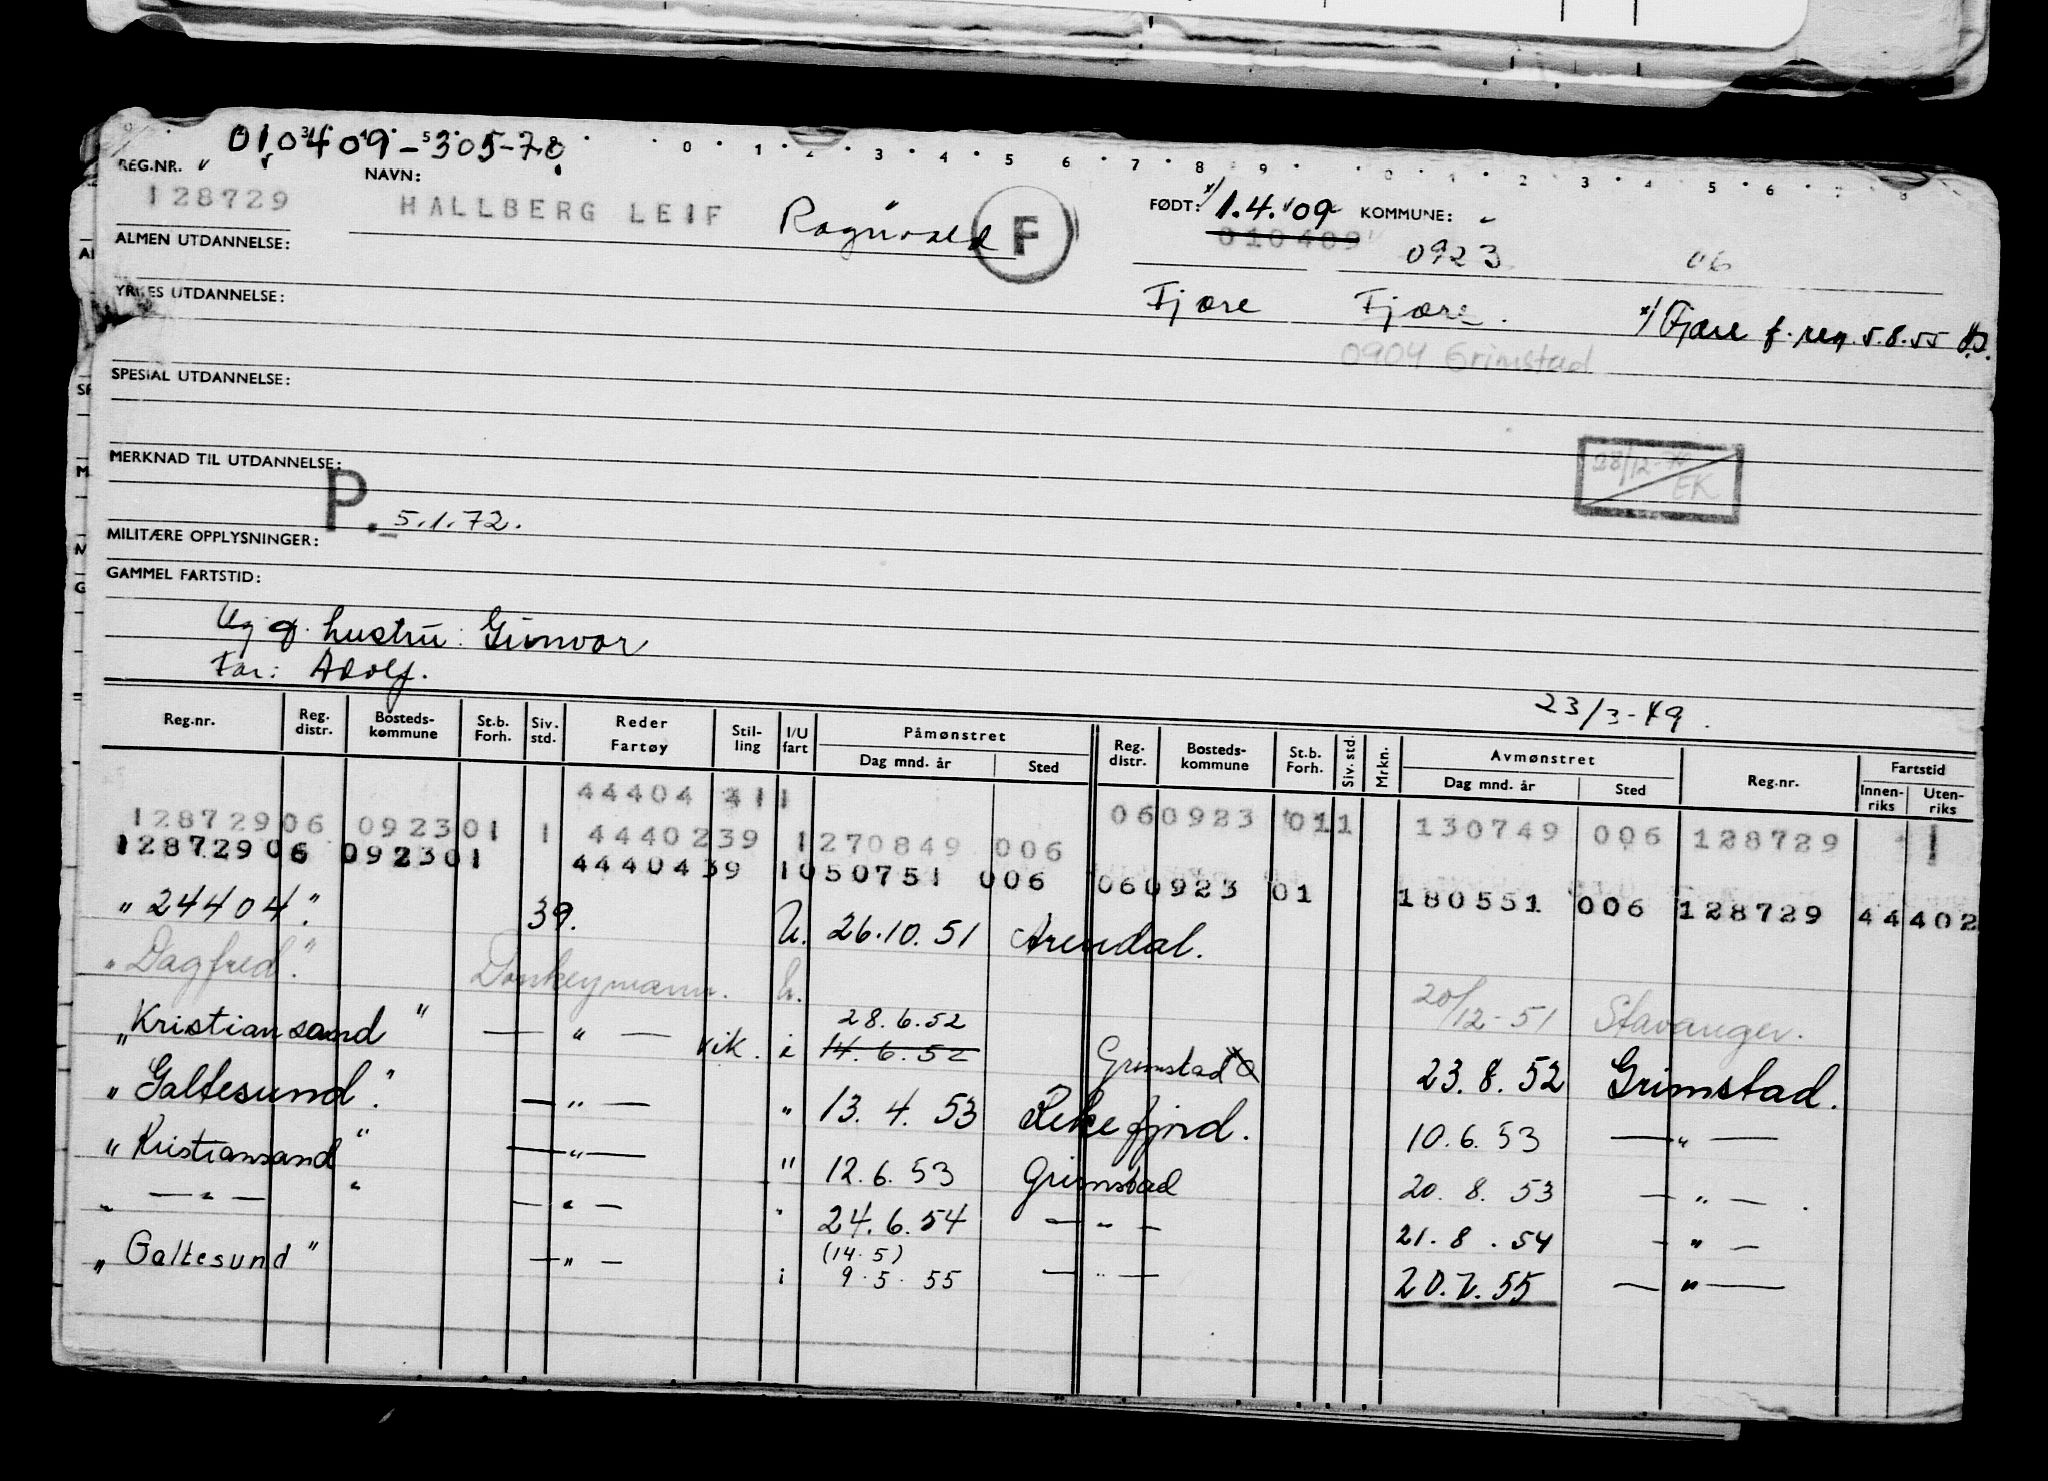 010409-305-70
0 1 2 3 4 5 6 7 8 9 0 1 2 3 4 5 6 7 8
REG.NR. NAVN: FØDT: x/ 1.4.09 KOMMUNE:
128729 HALLBERG LEIF Ragnvald F 010409 0923 06
ALMEN UTDANNELSE:
YRKES UTDANNELSE: Fjære Fjære. x/ Fjære f. reg. 5.8.55
0904 Grimstad
SPESIAL UTDANNELSE:
MERKNAD TIL UTDANNELSE: 28/12- EK
P. 5.1.72.
MILITÆRE OPPLYSNINGER:
GAMMEL FARTSTID:
Ug. g. hustru: Gunvor
Far: Adolf.
23/3-49.
Reg.nr. Reg. distr. Bosteds-kommune St.b. Forh. Siv. std. Reder Fartøy Stil-ling I/U fart Påmønstret Dag mnd. år Sted Reg. distr. Bosteds-kommune St.b. Forh. Siv. std. Mrkn. Avmønstret Dag mnd. år Sted Reg.nr. Fartstid Innen-riks Uten-riks
44404 411 060923 011 130749 006 128729 1
12872906 092301 1 4440239 1270849 006
12872906 092301 4440439 1050751 006 060923 01 180551 006 128729 44402
"24404" 39. U. 26.10.51 Arendal.
"Dagfred" Donkeymann. U. 20/12-51 Stavanger.
"Kristiansand" — " — vik. i 28.6.52 14.6.52 Grimstad 23.8.52 Grimstad.
"Galtesund" — " — " 13.4.53 Rekefjord. 10.6.53 — " —
"Kristiansand" — " — " 12.6.53 Grimstad 20.8.53 — " —
" — " — " — " — " 24.6.54 — " — 21.8.54 — " —
"Galtesund" — " — i (14.5) 9.5.55 — " — 20.7.55 — " —